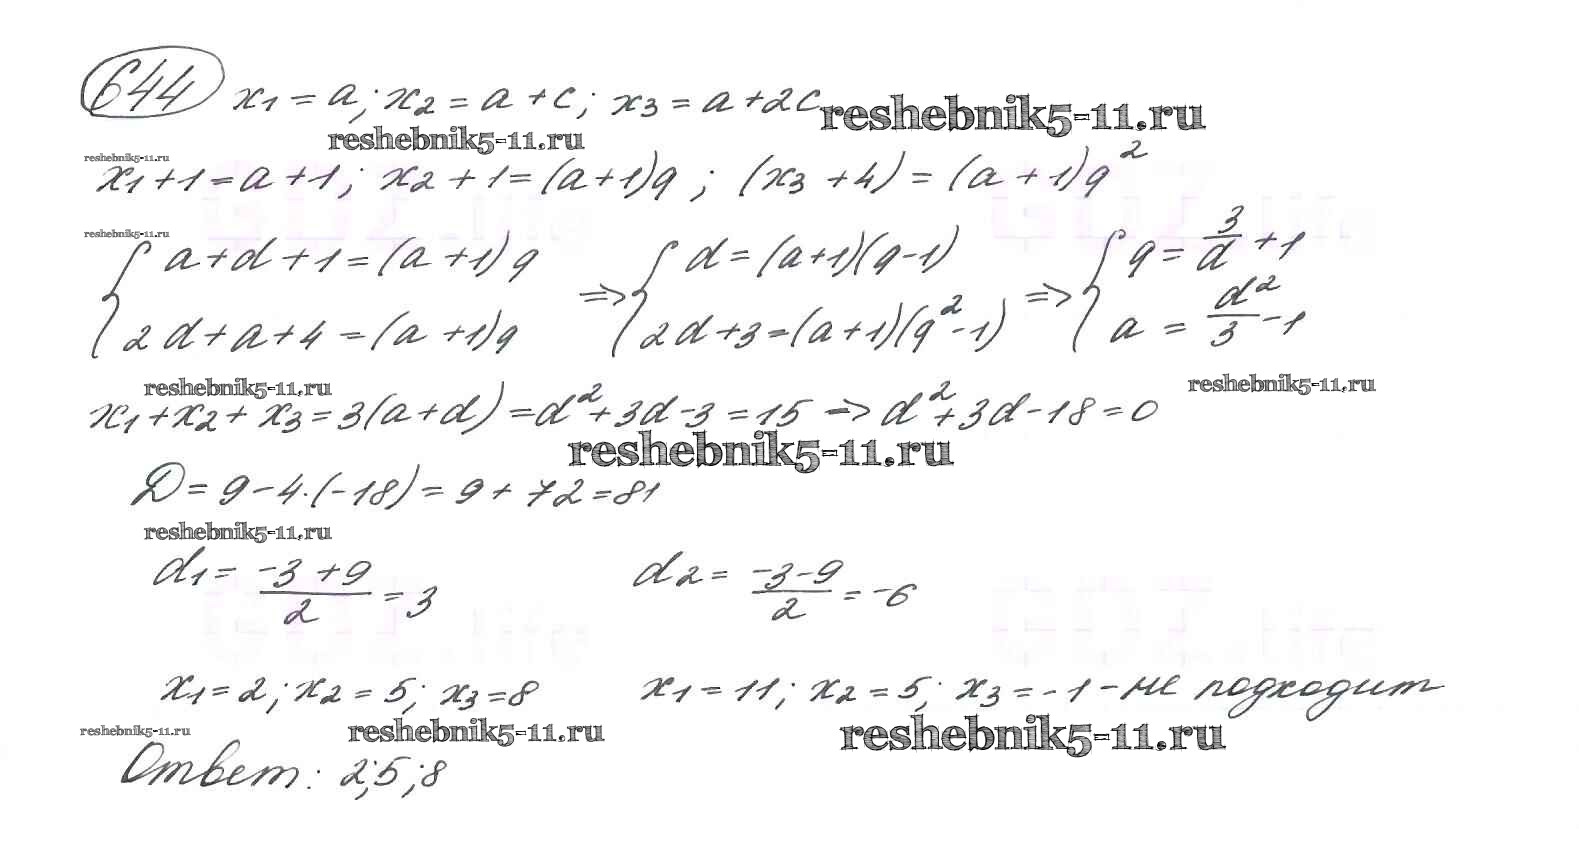 644 x₁ = a; x₂ = a + c; x₃ = a + 2c reshebnik5-11.ru
reshebnik5-11.ru
reshebnik5-11.ru
x₁ + 1 = a + 1; x₂ + 1 = (a + 1)q; (x₃ + 4) = (a + 1)q²
reshebnik5-11.ru
{ a + d + 1 = (a + 1)q => { d = (a + 1)(q - 1) => { q = 3/d + 1
2d + a + 4 = (a + 1)q 2d + 3 = (a + 1)(q² - 1) a = d²/3 - 1
reshebnik5-11.ru reshebnik5-11.ru
x₁ + x₂ + x₃ = 3(a + d) = d² + 3d - 3 = 15 => d² + 3d - 18 = 0
reshebnik5-11.ru
D = 9 - 4·(-18) = 9 + 72 = 81
reshebnik5-11.ru
d₁ = (-3 + 9)/2 = 3 d₂ = (-3 - 9)/2 = -6
x₁ = 2; x₂ = 5; x₃ = 8 x₁ = 11; x₂ = 5; x₃ = -1 - не подходит
reshebnik5-11.ru reshebnik5-11.ru reshebnik5-11.ru
Ответ: 2; 5; 8